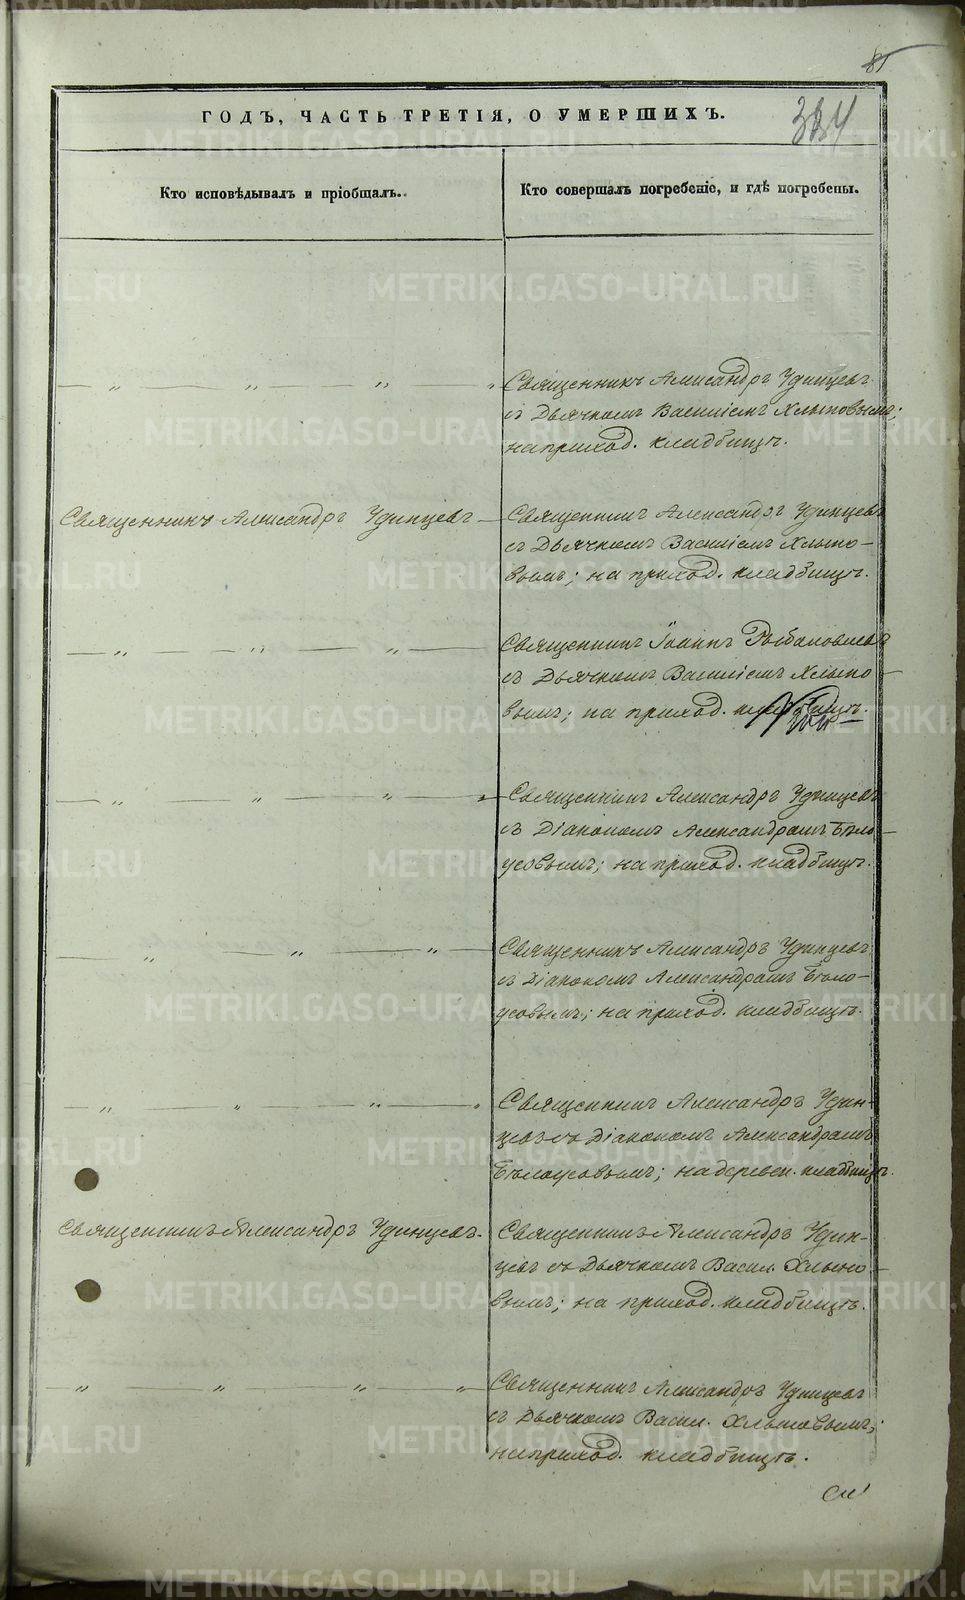 85
ГОДЪ, ЧАСТЬ ТРЕТІЯ, О УМЕРШИХЪ.
334
Кто исповѣдывалъ и пріобщалъ.
Кто совершалъ погребеніе, и гдѣ погребены.
Священникъ Александръ Удинцевъ
съ Дьячкомъ Василіемъ Хлыновымъ;
на приход. кладбищѣ.
Священникъ Александръ Удинцевъ
Священникъ Александръ Удинцевъ
съ Дьячкомъ Василіемъ Хлыно-
вымъ; на приход. кладбищѣ.
Священникъ Іоаннъ
съ Дьячкомъ Василіемъ Хлыно-
вымъ; на приход. кладбищѣ.
Священникъ Александръ Удинцевъ
съ Діакономъ Александромъ Бѣло-
усовымъ; на приход. кладбищѣ.
Священникъ Александръ Удинцевъ
съ Діакономъ Александромъ Бѣло-
усовымъ; на приход. кладбищѣ.
Священникъ Александръ Удин-
цевъ съ Діакономъ Александромъ
Бѣлоусовымъ; на деревен. кладбищѣ.
Священникъ Александръ Удинцевъ.
Священникъ Александръ Удин-
цевъ съ Дьячкомъ Васил. Хлыно-
вымъ; на приход. кладбищѣ.
Священникъ Александръ Удинцевъ
съ Дьячкомъ Васил. Хлыновымъ;
на приход. кладбищѣ.
METRIKI.GASO-URAL.RU